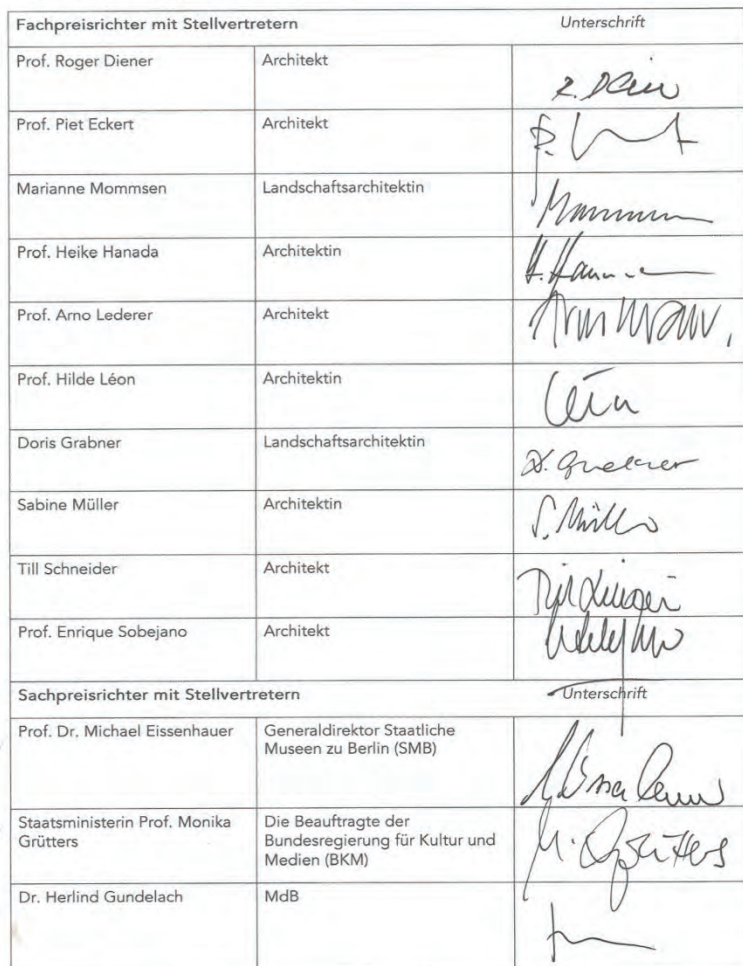 Fachpreisrichter mit Stellvertretern Unterschrift
Prof. Roger Diener Architekt
Prof. Piet Eckert Architekt
Marianne Mommsen Landschaftsarchitektin
Prof. Heike Hanada Architektin
Prof. Arno Lederer Architekt
Prof. Hilde Léon Architektin
Doris Grabner Landschaftsarchitektin
Sabine Müller Architektin
S. Müller
Till Schneider Architekt
Prof. Enrique Sobejano Architekt
Sachpreisrichter mit Stellvertretern Unterschrift
Prof. Dr. Michael Eissenhauer Generaldirektor Staatliche
Museen zu Berlin (SMB)
Staatsministerin Prof. Monika Die Beauftragte der
Grütters Bundesregierung für Kultur und
Medien (BKM)
M. Grütters
Dr. Herlind Gundelach MdB